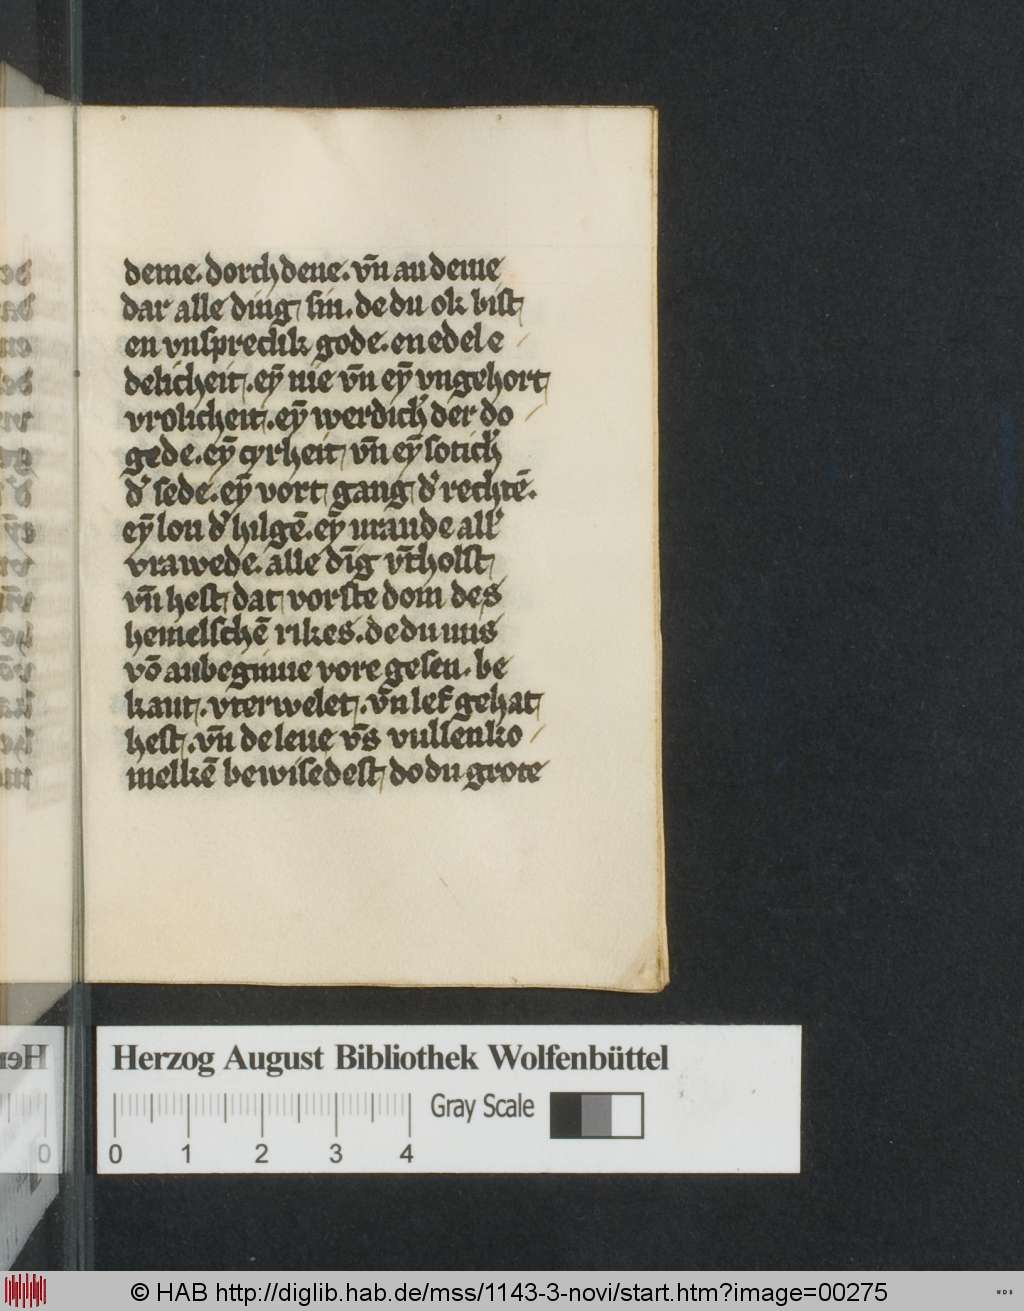 deme. dorch dene. vn̄ an deme
dar alle ding sin. de du ok bist
en vnsprechlik gode. en edel e
delicheit. eȳ nie vn̄ eȳ vngehort
vrolicheit. eȳ werdich der do
gede. eȳ cyrheit vn̄ eȳ sotich
d' sede. eȳ vort gang d' rechtē.
eȳ lon d' hilgē. eȳ vraude all'
vrawede. alle dīg vt̄holst
vn̄ hest dat vorste dom des
hemelschē rikes. de du uns
vō anbeginne vore gesen. be
kant. vterwelet. vn̄ lef gehat
hest. vn̄ de leue vs̄ vullenko
melkē bewisedest do du grote
Herzog August Bibliothek Wolfenbüttel
Gray Scale
0 1 2 3 4
© HAB http://diglib.hab.de/mss/1143-3-novi/start.htm?image=00275